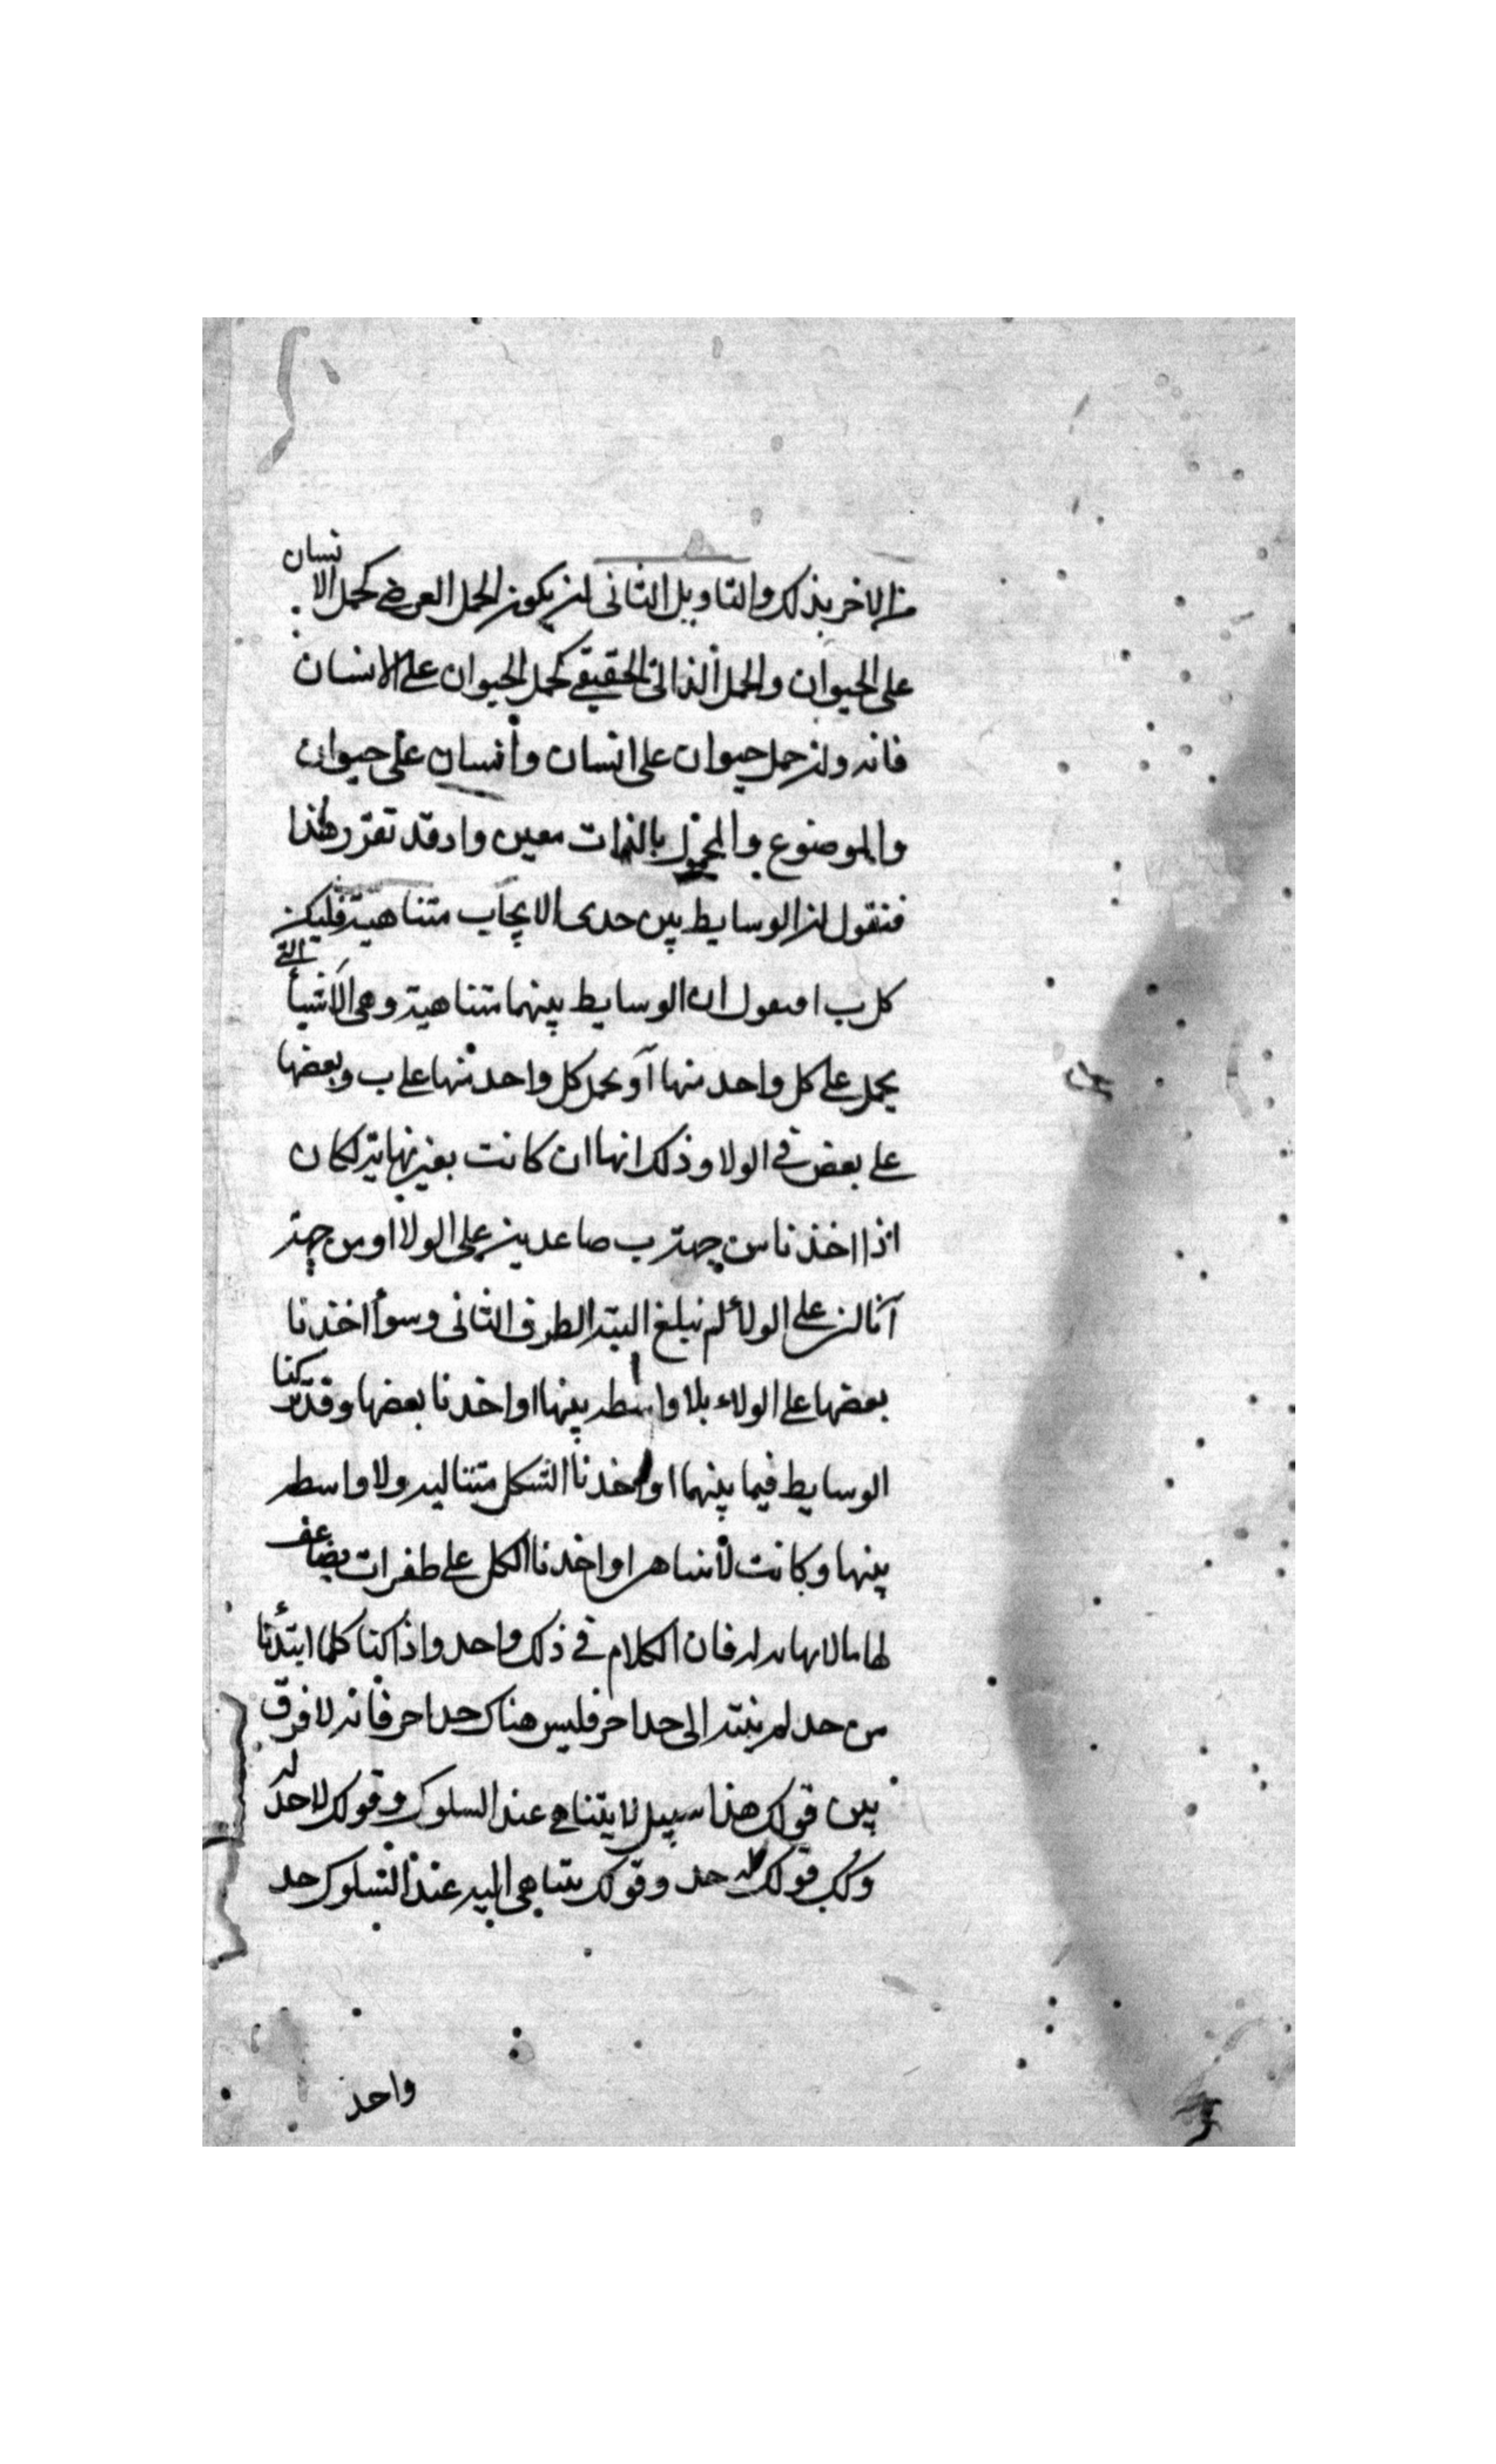 من الاخر بذلك والتاويل الثانى ان يكون الحمل العرضى كحمل الانسان
على الحيوان والحمل الذاتى الحقيقى كحمل الحيوان على الانسان
فانه وان حمل حيوان على انسان وانسان على حيوان
والموضوع والمحمول بالذات معين واد قد تقرر هذا
فنقول ان الوسايط بين حدى الايجاب متناهية فليكن
كل ب ا فنقول ان الوسايط بينهما متناهية وهى الاشيأ التى
يحمل على كل واحد منها آ ويحمل كل واحد منها على ب وبعضها
على بعض فى الولا وذلك انها ان كانت بغير نهاية لكان
اذا اخذنا من جهة ب صاعدين على الولا او من جهة
آ نازلين على الولأ لم نبلغ البتة الطرف الثانى وسوأ اخذنا
بعضها على الولاء بلا واسطه بينها او اخدنا بعضها وقد تركنا
الوسايط فيما بينهما او اخدنا الكل متتاليه ولا واسطه
بينها وكانت لا تتناهى او اخدنا الكل على طفرات يضاعف
لها ما لا نهايه له فان الكلام فى ذلك واحد واذا كنا كلما ابتدأنا
من حد لم ينته الى حد اخر فليس هناك حد اخر فانه لا فرق
بين قولك هذا سبيل لا يتناهى عند السلوك وقولك لا حد له
وكك قولك له حد وقولك يتناهى اليه عند السلوك حد
واحد